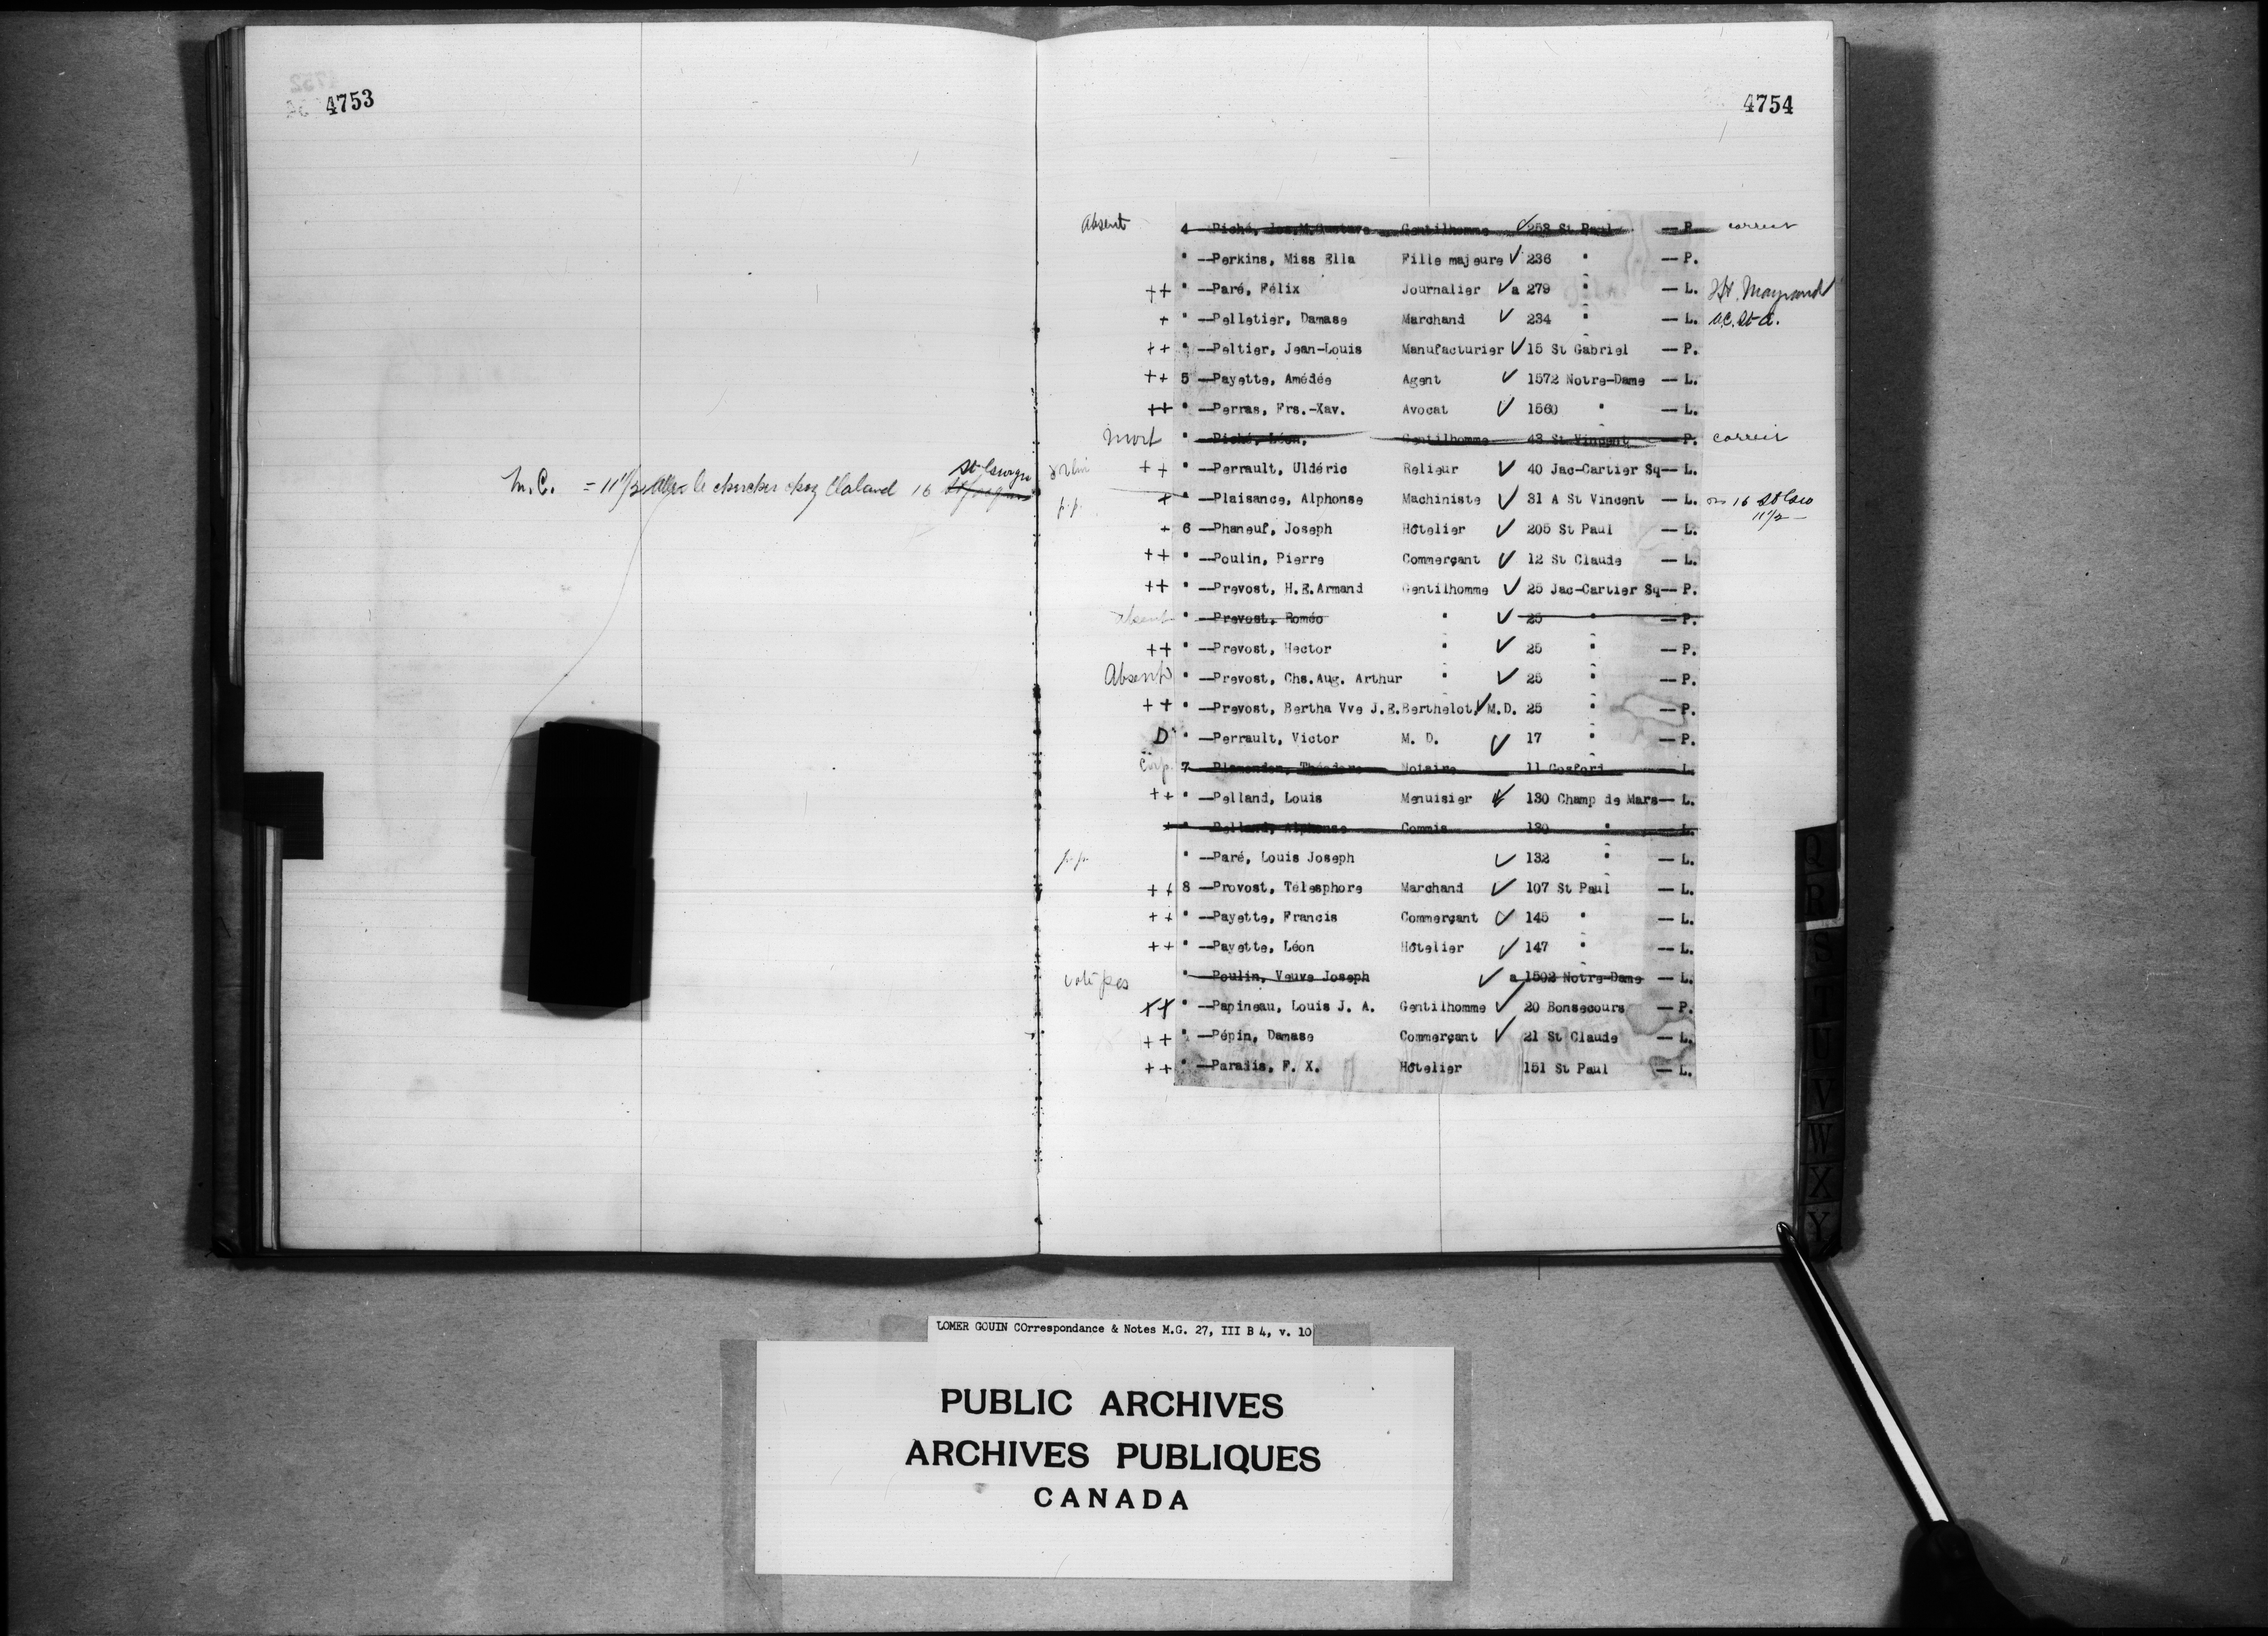 4753
4754
M.C. = 11 1/2 aller le chercher chez Claland 16 St George
Absent 4 —Piché, Jos.M.Gustave Gentilhomme ✓ 258 St Paul — P. correct
" —Perkins, Miss Ella Fille majeure ✓ 236 " — P.
++ " —Paré, Félix Journalier ✓ a 279 " — L.
+ " —Pelletier, Damase Marchand ✓ 234 " — L.
++ " —Peltier, Jean-Louis Manufacturier ✓ 15 St Gabriel — P.
++ 5 —Payette, Amédée Agent ✓ 1572 Notre-Dame — L.
++ " —Perras, Frs.-Xav. Avocat ✓ 1560 " — L.
mort " —Piché, Léon, Gentilhomme 43 St Vincent — P. correct
++ " —Perrault, Uldéric Relieur ✓ 40 Jac-Cartier Sq— L.
p.p. + " —Plaisance, Alphonse Machiniste ✓ 31 A St Vincent — L. on 16 St Geo
11 1/2 —
+ 6 —Phaneuf, Joseph Hôtelier ✓ 205 St Paul — L.
++ " —Poulin, Pierre Commerçant ✓ 12 St Claude — L.
++ " —Prevost, H.E.Armand Gentilhomme ✓ 25 Jac-Cartier Sq— P.
absent " —Prevost, Roméo " ✓ 25 " — P.
++ " —Prevost, Hector " ✓ 25 " — P.
Absent " —Prevost, Chs.Aug. Arthur " ✓ 25 " — P.
++ " —Prevost, Bertha Vve J.E.Berthelot, ✓ M.D. 25 " — P.
D " —Perrault, Victor M. D. ✓ 17 " — P.
Corp. 7 —Plamondon, Théodore Notaire 11 Gosford — L.
++ " —Pelland, Louis Menuisier ✓ 130 Champ de Mars— L.
+ " —Pelland, Alphonse Commis 130 " — L.
p.p. " —Paré, Louis Joseph ✓ 132 " — L.
++ 8 —Provost, Télesphore Marchand ✓ 107 St Paul — L.
++ " —Payette, Francis Commerçant ✓ 145 " — L.
++ " —Payette, Léon Hôtelier ✓ 147 " — L.
vote pas " —Poulin, Veuve Joseph ✓ a 1502 Notre-Dame — L.
++ " —Papineau, Louis J. A. Gentilhomme ✓ 20 Bonsecours — P.
++ " —Pépin, Damase Commerçant ✓ 21 St Claude — L.
++ " —Paradis, F. X. Hôtelier 151 St Paul — L.
Q
R
S
T
U
V
W
X
Y
LOMER GOUIN COrrespondance & Notes M.G. 27, III B 4, v. 10
PUBLIC ARCHIVES
ARCHIVES PUBLIQUES
CANADA